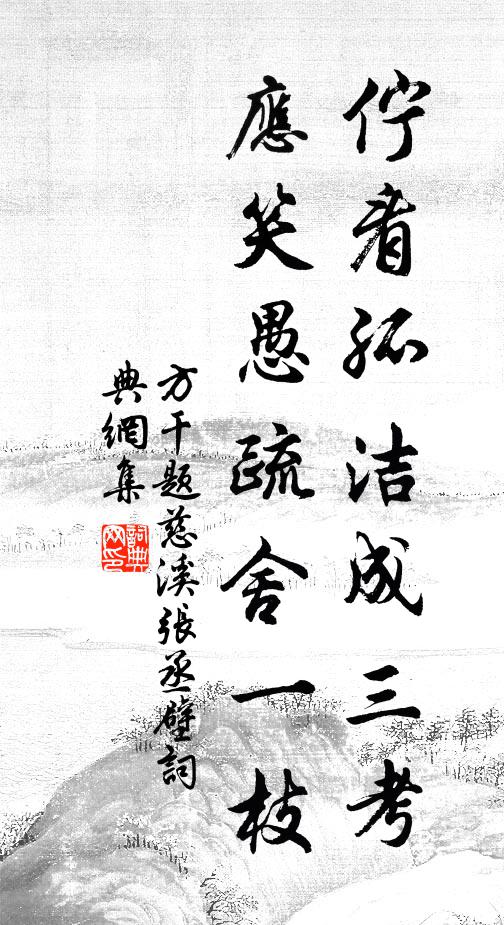 佇看孤洁成三考
應笑愚疏舍一枝
方干题慈溪張丞壁詞
典網集
詞典
网印